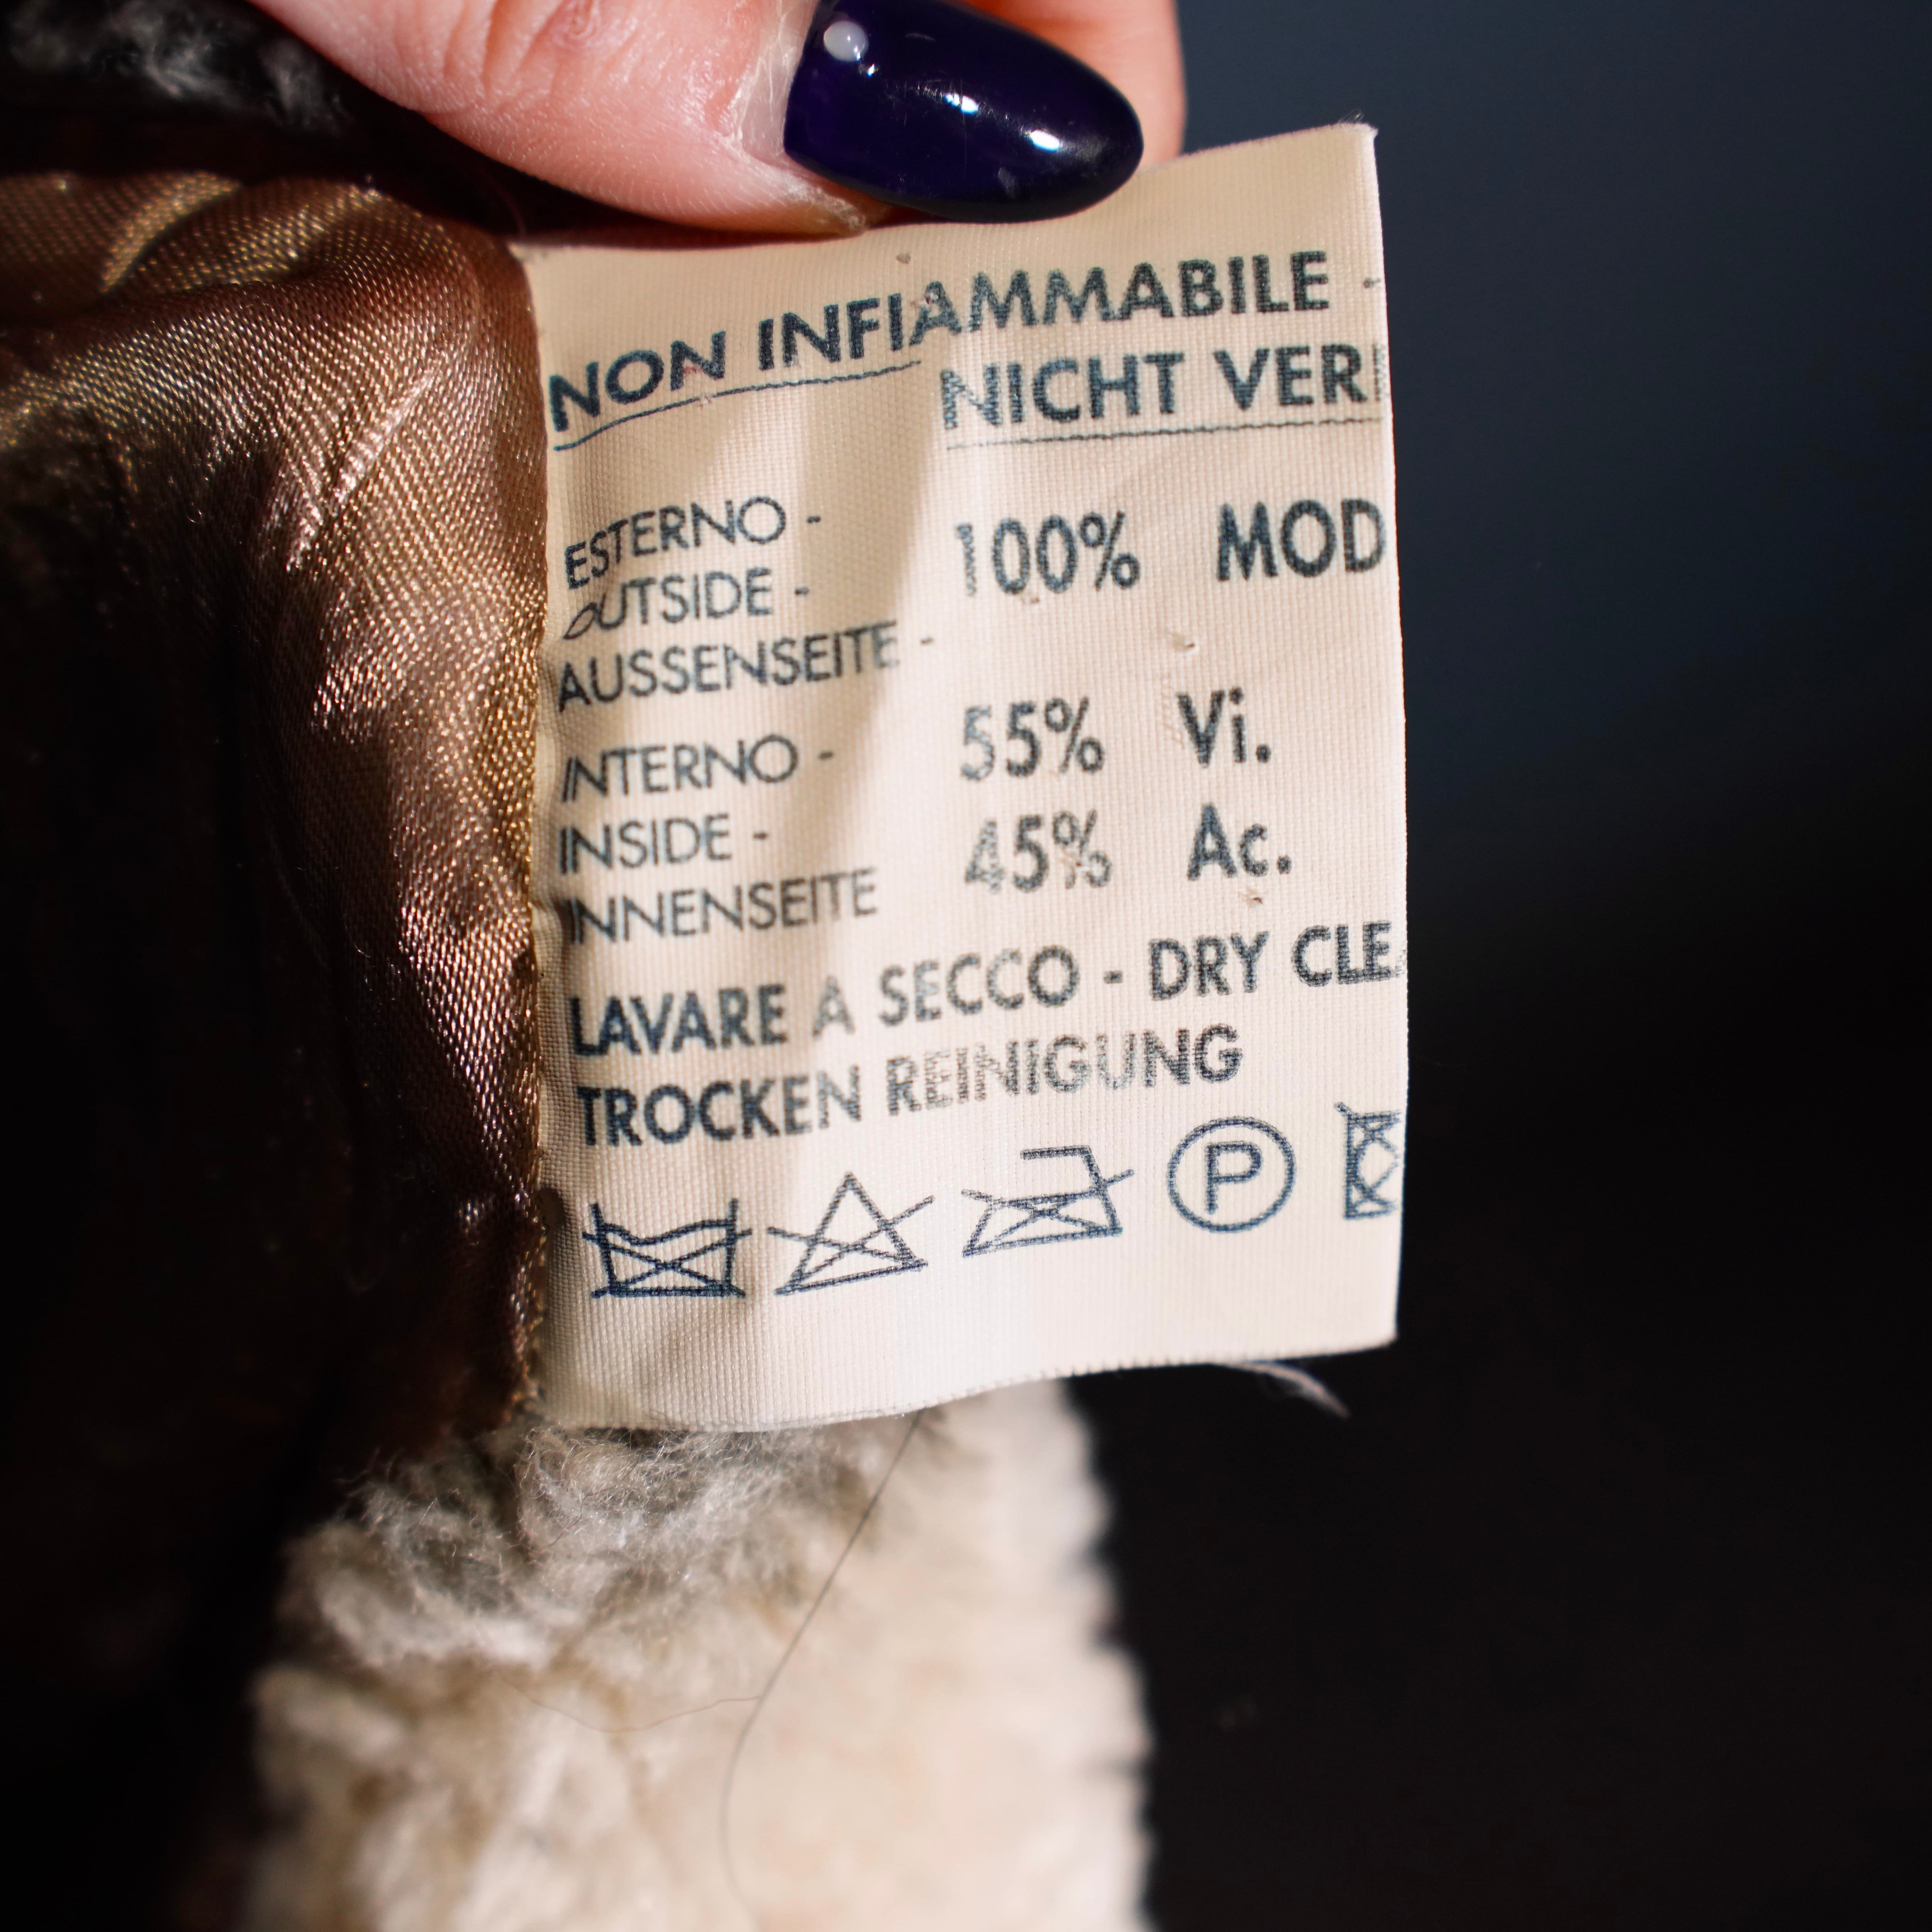 NON INFIAMMABILE -
NICHT VER
ESTERNO -
OUTSIDE -
AUSSENSEITE -
100% MOD
INTERNO -
INSIDE -
INNENSEITE
55% Vi.
45% Ac.
LAVARE A SECCO - DRY CLE
TROCKEN REINIGUNG
P